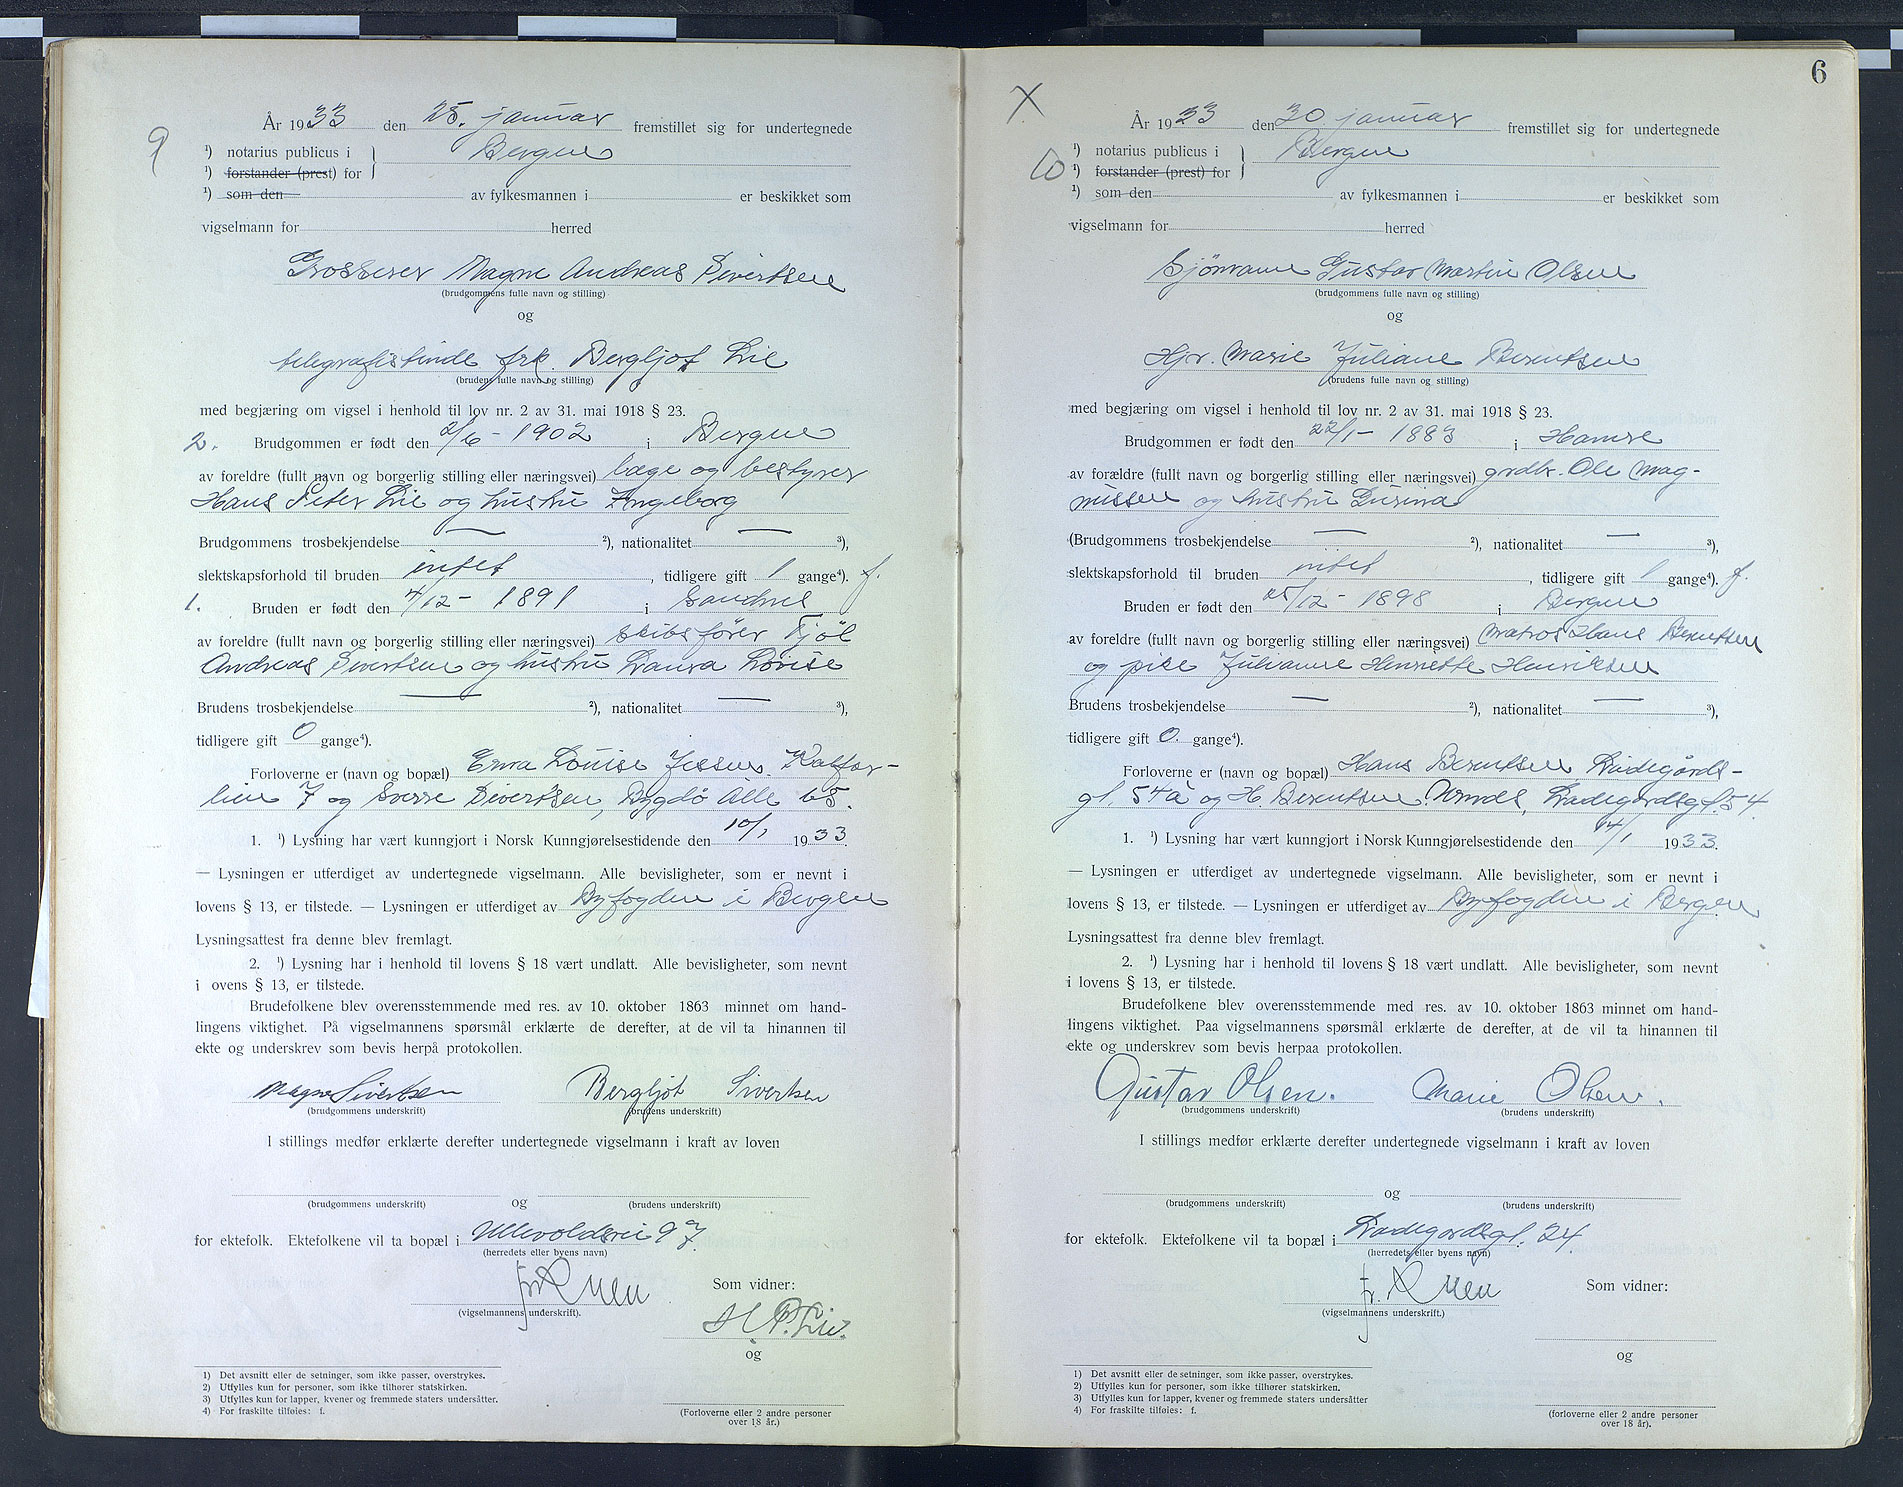 9
År 1933 den 25. januar fremstillet sig for undertegnede
¹) notarius publicus i } Bergen
¹) forstander (prest) for
¹) som den av fylkesmannen i er beskikket som
vigselmann for herred
Grosserer Magne Andreas Sivertsen
(brudgommens fulle navn og stilling)
og
telegrafistinde frk. Bergljot Lie
(brudens fulle navn og stilling)
med begjæring om vigsel i henhold til lov nr. 2 av 31. mai 1918 § 23.
2. Brudgommen er født den 2/6 - 1902 i Bergen
av foreldre (fullt navn og borgerlig stilling eller næringsvei) læge og bestyrer
Hans Peter Lie og hustru Ingeborg
Brudgommens trosbekjendelse — ²), nationalitet — ³),
slektskapsforhold til bruden intet, tidligere gift 1 gange⁴). f.
1. Bruden er født den 4/12 - 1891 i Sandnes
av foreldre (fullt navn og borgerlig stilling eller næringsvei) skibsfører Fjøl
Andreas Sivertsen og hustru Laura Lovise
Brudens trosbekjendelse — ²), nationalitet — ³),
tidligere gift 0 gange⁴).
Forloverne er (navn og bopæl) Erna Louise Jessen, Kalfar-
lien 7 og Sverre Sivertsen, Bygdø Alle 65.
1. ¹) Lysning har vært kunngjort i Norsk Kunngjørelsestidende den 10/1 1933.
— Lysningen er utferdiget av undertegnede vigselmann. Alle bevisligheter, som er nevnt i
lovens § 13, er tilstede. — Lysningen er utferdiget av Byfogden i Bergen
Lysningsattest fra denne blev fremlagt.
2. ¹) Lysning har i henhold til lovens § 18 vært undlatt. Alle bevisligheter, som nevnt
i ovens § 13, er tilstede.
Brudefolkene blev overensstemmende med res. av 10. oktober 1863 minnet om hand-
lingens viktighet. På vigselmannens spørsmål erklærte de derefter, at de vil ta hinannen til
ekte og underskrev som bevis herpå protokollen.
Magne Sivertsen Bergljot Sivertsen
(brudgommens underskrift) (brudens underskrift)
I stillings medfør erklærte derefter undertegnede vigselmann i kraft av loven
og
(brudgommens underskrift) (brudens underskrift)
for ektefolk. Ektefolkene vil ta bopæl i Ullevoldsvei 97.
(herredets eller byens navn)
Som vidner:
(vigselmannens underskrift).
H. P. Lie.
og
1) Det avsnitt eller de setninger, som ikke passer, overstrykes.
2) Utfylles kun for personer, som ikke tilhører statskirken.
3) Utfylles kun for lapper, kvener og fremmede staters undersåtter.
4) For fraskilte tilføies: f.
(Forloverne eller 2 andre personer
over 18 år.)
6
X
10
År 1933 den 30. januar fremstillet sig for undertegnede
¹) notarius publicus i } Bergen
¹) forstander (prest) for
¹) som den av fylkesmannen i er beskikket som
vigselmann for herred
Sjömann Gustav Martin Olsen
(brudgommens fulle navn og stilling)
og
Hjv. Marie Juliane Berentsen
(brudens fulle navn og stilling)
med begjæring om vigsel i henhold til lov nr. 2 av 31. mai 1918 § 23.
Brudgommen er født den 22/1 - 1883 i Hamre
av forældre (fullt navn og borgerlig stilling eller næringsvei) grdbr. Ole Mag-
nussen og hustru Gurina
(Brudgommens trosbekjendelse — ²), nationalitet — ³),
slektskapsforhold til bruden intet, tidligere gift 1 gange⁴). f.
Bruden er født den 25/12 - 1898 i Bergen
av foreldre (fullt navn og borgerlig stilling eller næringsvei) matros Hans Berentsen
og pike Julianne Henriette Henriksen
Brudens trosbekjendelse — ²), nationalitet — ³),
tidligere gift 0. gange⁴).
Forloverne er (navn og bopæl) Hans Berentsen, Ladegårds-
gt. 54a og H. Berentsen, Ladegårdsgt. 54.
1. ¹) Lysning har vært kunngjort i Norsk Kunngjørelsestidende den 14/1 1933.
— Lysningen er utferdiget av undertegnede vigselmann. Alle bevisligheter, som er nevnt i
lovens § 13, er tilstede. — Lysningen er utferdiget av Byfogden i Bergen
Lysningsattest fra denne blev fremlagt.
2. ¹) Lysning har i henhold til lovens § 18 vært undlatt. Alle bevisligheter, som nevnt
i lovens § 13, er tilstede.
Brudefolkene blev overensstemmende med res. av 10. oktober 1863 minnet om hand-
lingens viktighet. Paa vigselmannens spørsmål erklærte de derefter, at de vil ta hinannen til
ekte og underskrev som bevis herpaa protokollen.
Gustav Olsen. Marie Olsen.
(brudgommens underskrift) (brudens underskrift)
I stillings medfør erklærte derefter undertegnede vigselmann i kraft av loven
og
(brudgommens underskrift) (brudens underskrift)
for ektefolk. Ektefolkene vil ta bopæl i Ladegårdsgt. 24.
(herredets eller byens navn)
Som vidner:
(vigselmannens underskrift.)
og
1) Det avsnitt eller de setninger, som ikke passer, overstrykes.
2) Utfylles kun for personer, som ikke tilhører statskirken.
3) Utfylles kun for lapper, kvener og fremmede staters undersåtter
4) For fraskilte tilføies: f.
(forloverne eller 2 andre personer
over 18 år).